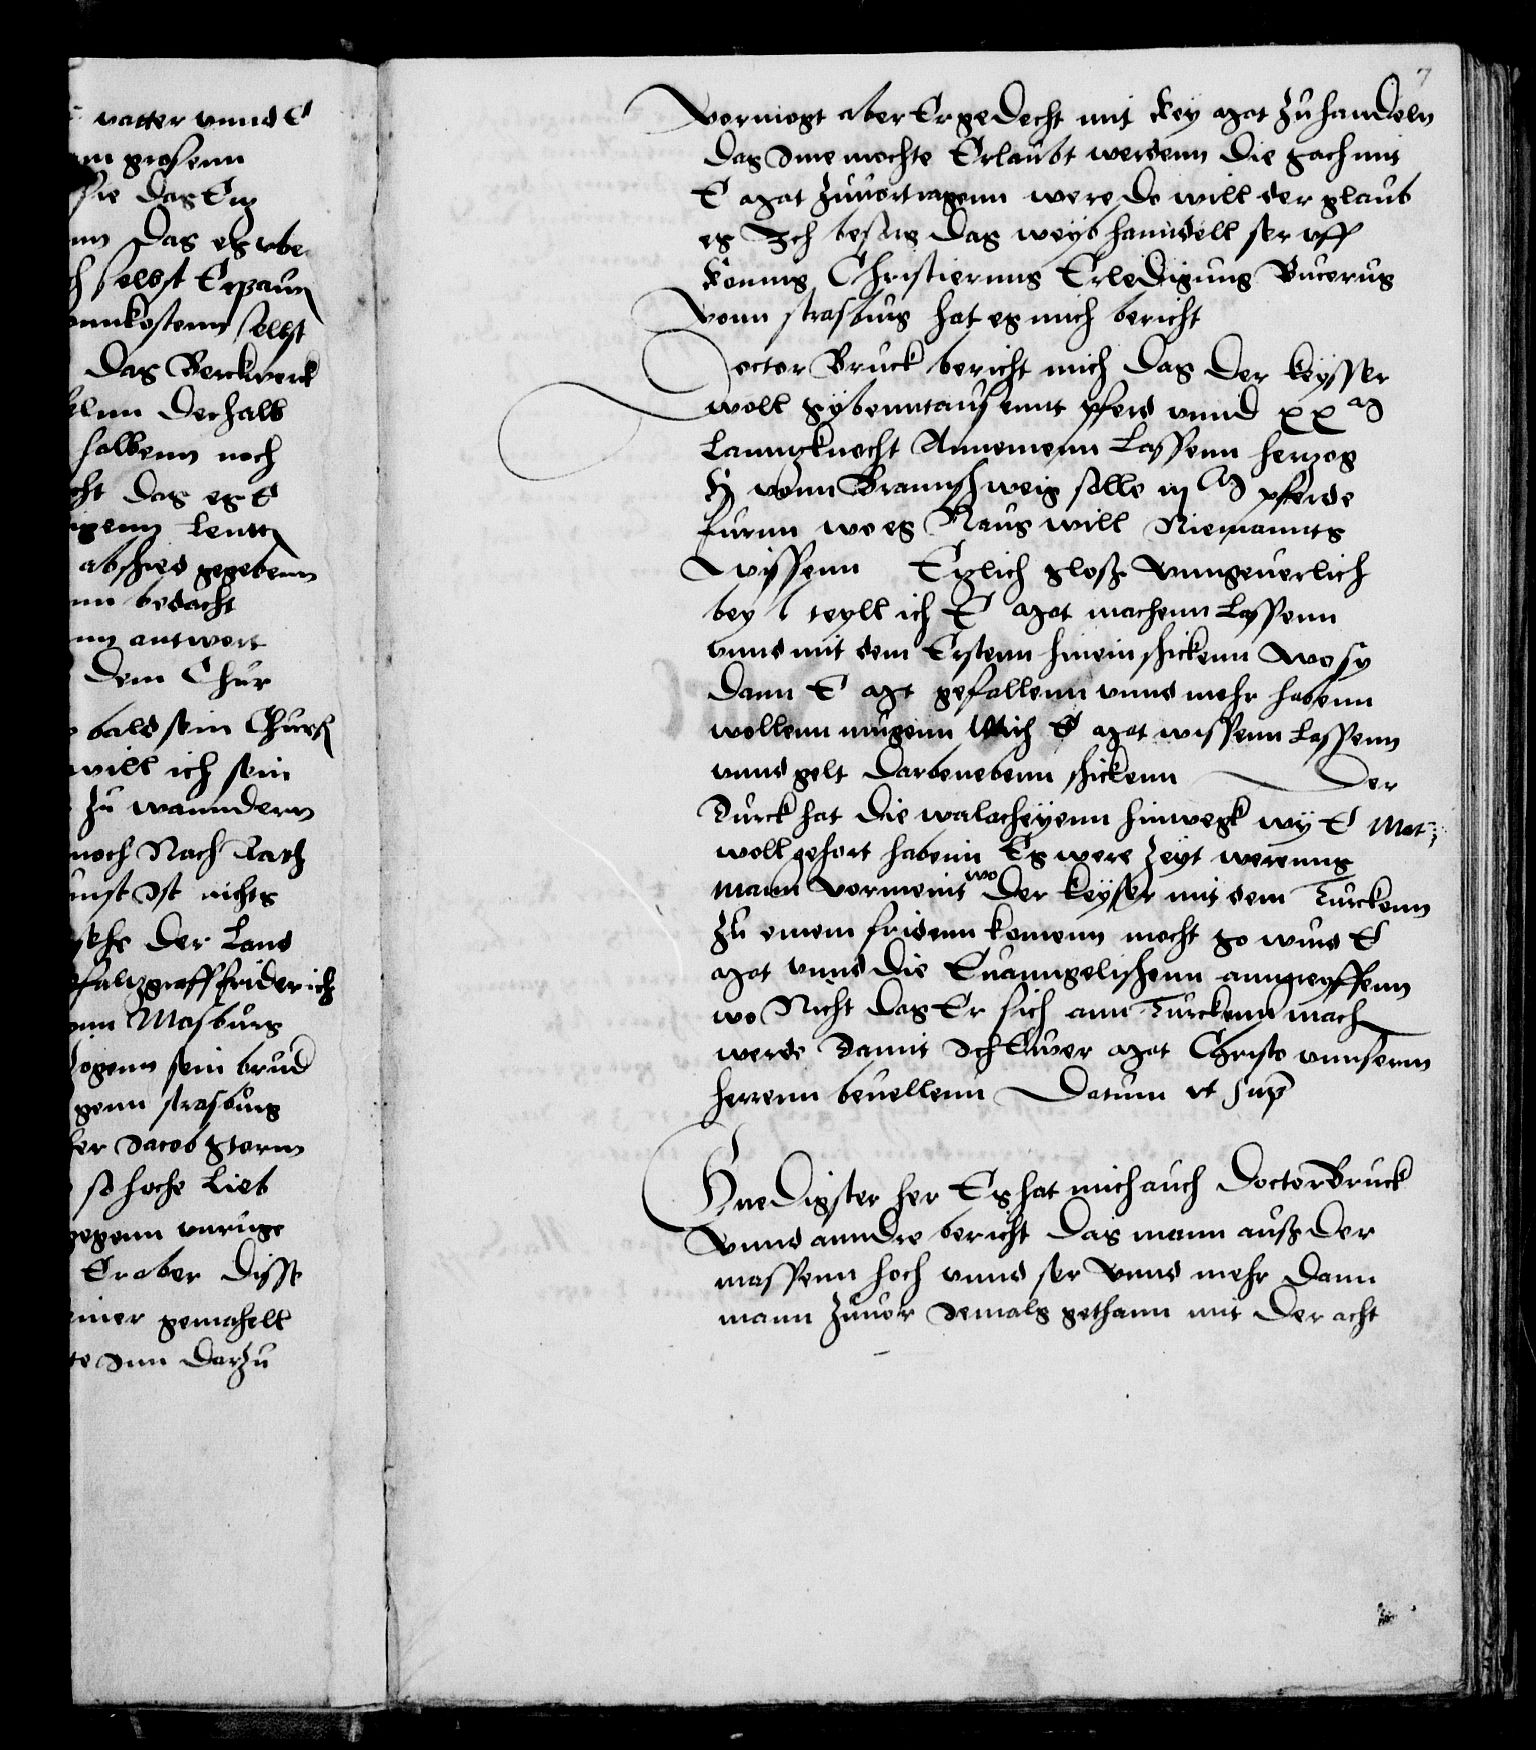 7
vormogt aber Er gedecht mit key Mat zu handeln
das Ime mochte Erlaubt werdenn die sach mit
E Mat zuuortragenn were do will der glaub
es Ich besorg das weyb hanndell ser vff
konnig Christiernus Erledigung Bucerus
vonn strasburg hat es mich bericht
Doctor Bruck bericht mich das der keysser
woll sybenntausennt pferd vnnd xx M
Lanntzknecht Annemenn Lassenn hertzog
H vonn Braunschweig solle iij M pferde
furnn wo es Naus will Niemannts
wyssenn Etzlich glosz vnngeuerlich
bey l teyll ich E Mat machenn Lassenn
vnnd mit dem Erstenn hinein schickenn wo sy
dann E Mt gefallenn vnnd mehr habenn
wollenn mugenn Mich E Mat wissenn Lassenn
vnnd gelt darbenebenn schickenn Der
Turck hat die walacheyenn hinwegk wy E Mat
woll gehort habenn Es were zeyt werenns
Mann vormeint wo der keyser mit dem Turckenn
zu einem fridenn komenn mocht so wurd E
Mat vnnd die Euanngelischenn anngreyffenn
wo Nicht das Er sich ann Turckenn mach
werde damit Ich Ewer Mat Christo vnnserm
herrenn beuellenn Datum vt sup
Gnedigster her Es hat mich auch Doctor Bruck
vnnd anndre bericht das mann ausz der
massenn hoch vnnd ser vnnd mehr dann
mann zuuor Iemals gethann mit der acht
vatter vnnd E
grosenn
sie das Ertz
das es vbe
selbst Erpaun
vnnkostenn selbst
das Berckwerck
derhalb
halbenn noch
das es E
Leutt
abschied gegebenn
bedacht
antwert
dem Chur
bald sein Churf
will ich sein
zu wanndern
noch Nach
Ist nichts
der Land
pfaltzgraff friderich
Masburg
sein brud
strasburg
Jacob storm
so hoche Lieb
gegenn vnruge
Er aber disse
einer gemahelt
Inn darzu